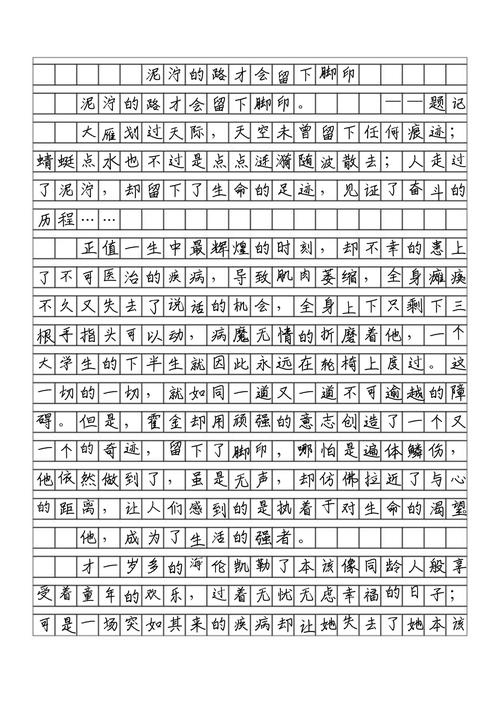 泥泞的路才会留下脚印
泥泞的路才会留下脚印。 ——题记
大雁划过天际,天空未曾留下任何痕迹;
蜻蜓点水也不过是点点涟漪随波散去;人走过
了泥泞,却留下了生命的足迹,见证了奋斗的
历程……
正值一生中最辉煌的时刻,却不幸的患上
了不可医治的疾病,导致肌肉萎缩,全身瘫痪
不久又失去了说话的机会,全身上下只剩下三
根手指头可以动,病魔无情的折磨着他,一个
大学生的下半生就因此永远在轮椅上度过。这
一切的一切,就如同一道又一道不可逾越的障
碍。但是,霍金却用顽强的意志创造了一个又
一个的奇迹,留下了脚印,哪怕是遍体鳞伤,
他依然做到了,虽是无声,却仿佛拉近了与心
的距离,让人们感到的是执着于对生命的渴望
他,成为了生活的强者。
才一岁多的海伦凯勒了本该像同龄人般享
受着童年的欢乐,过着无忧无虑幸福的日子;
可是一场突如其来的疾病却让她失去了她本该